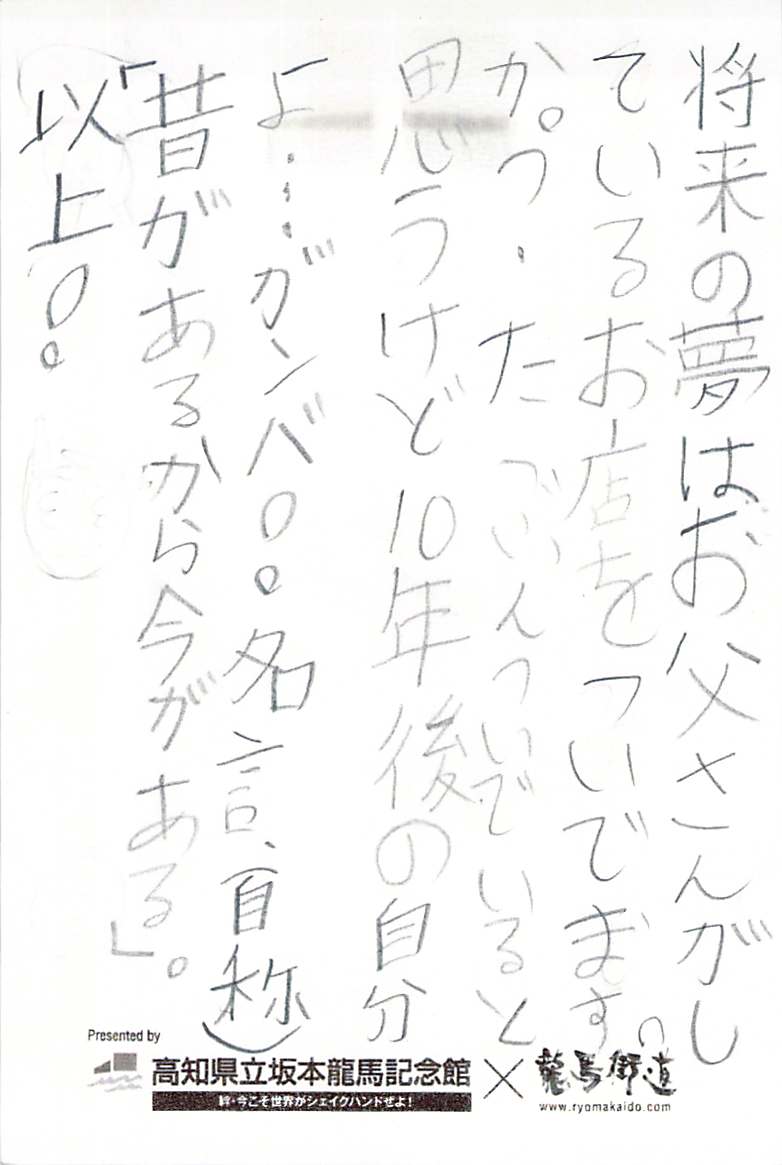 将来の夢はお父さんがし
ているお店をついでます。
か。っ・たぶんついでいると
思うけど10年後の自分
よ…ガンバ○。名言、自称)
「昔があるから今がある」。
以上○。
Presented by
高知県立坂本龍馬記念館×龍馬街道
絆・今こそ世界がシェイクハンドぜよ!
www.ryomakaido.com